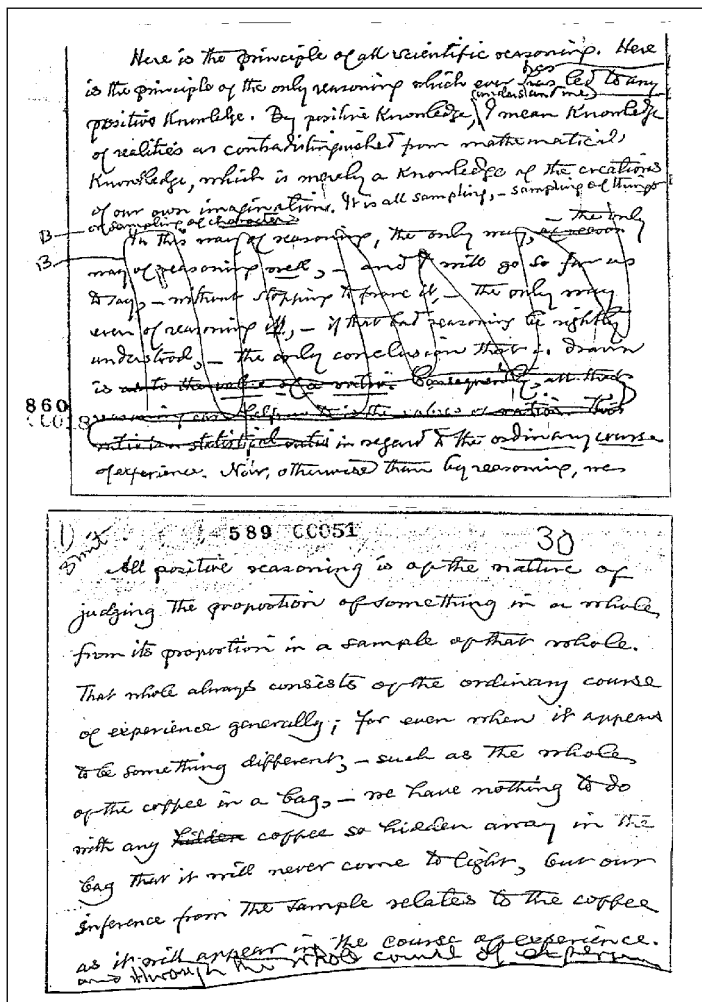 Here is the principle of all scientific reasoning. Here
has
is the principle of the only reasoning which ever has led to any
(understand me)
positive knowledge. By positive knowledge, I mean knowledge
of realities as contradistinguished from mathematical
knowledge, which is merely a knowledge of the creations
of our own imaginations. It is all sampling, – sampling of things
B or sampling of characters
– the only
B In this way of reasoning, the only way,
way of reasoning well, – and I will go so far as
to say, – without stopping to prove it, – the only way
even of reasoning ill, – if that bad reasoning be rightly
understood, – the only conclusion that is drawn
is as to the value of a ratio. Consequently, all that
860
reasoning can help us to is the values of
CC018
ratio is a statistical ratio in regard to the ordinary course
of experience. Now, otherwise than by reasoning, we
1) 589 CC051 30
Smit
All positive reasoning is of the nature of
judging the proportion of something in a whole
from its proportion in a sample of that whole.
That whole always consists of the ordinary course
of experience generally; for even when it appears
to be something different, – such as the whole
of the coffee in a bag, – we have nothing to do
with any hidden coffee so hidden away in the
bag that it will never come to light, but our
inference from the sample relates to the coffee
as it will appear in the course of experience.
and through the whole course of experience